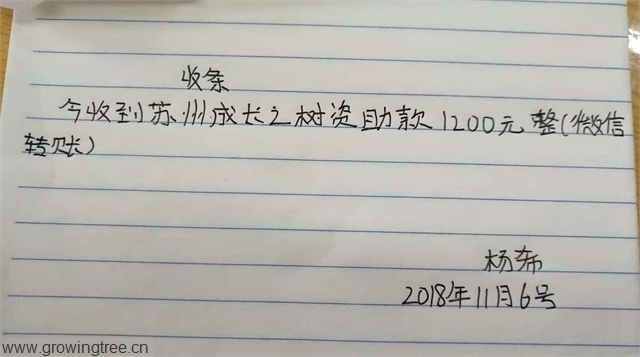 收条
今收到苏州成长之树资助款1200元整(微信
转账)
杨希
2018年11月6号
www.growingtree.cn